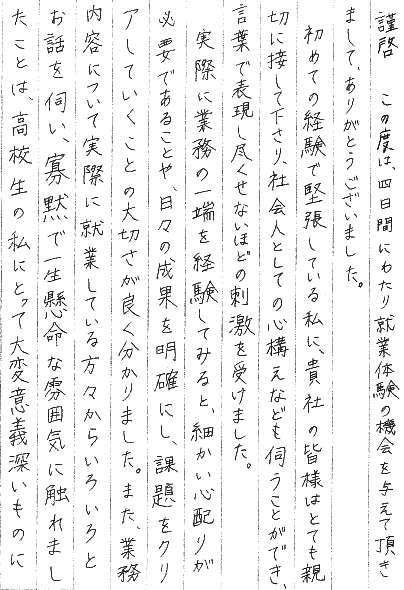 謹啓　この度は、四日間にわたり就業体験の機会を与えて頂き
まして、ありがとうございました。
初めての経験で堅張している私に、貴社の皆様はとても親
切に接して下さり、社会人としての心構えなども伺うことができ、
言葉で表現し尽くせないほどの刺激を受けました。
実際に業務の一端を経験してみると、細かい心配りが
必要であることや、日々の成果を明確にし、課題をクリ
アしていくことの大切さが良く分かりました。また、業務
内容について実際に就業している方々からいろいろと
お話を伺い、寡黙で一生懸命な雰囲気に触れまし
たことは、高校生の私にとって大変意義深いものに